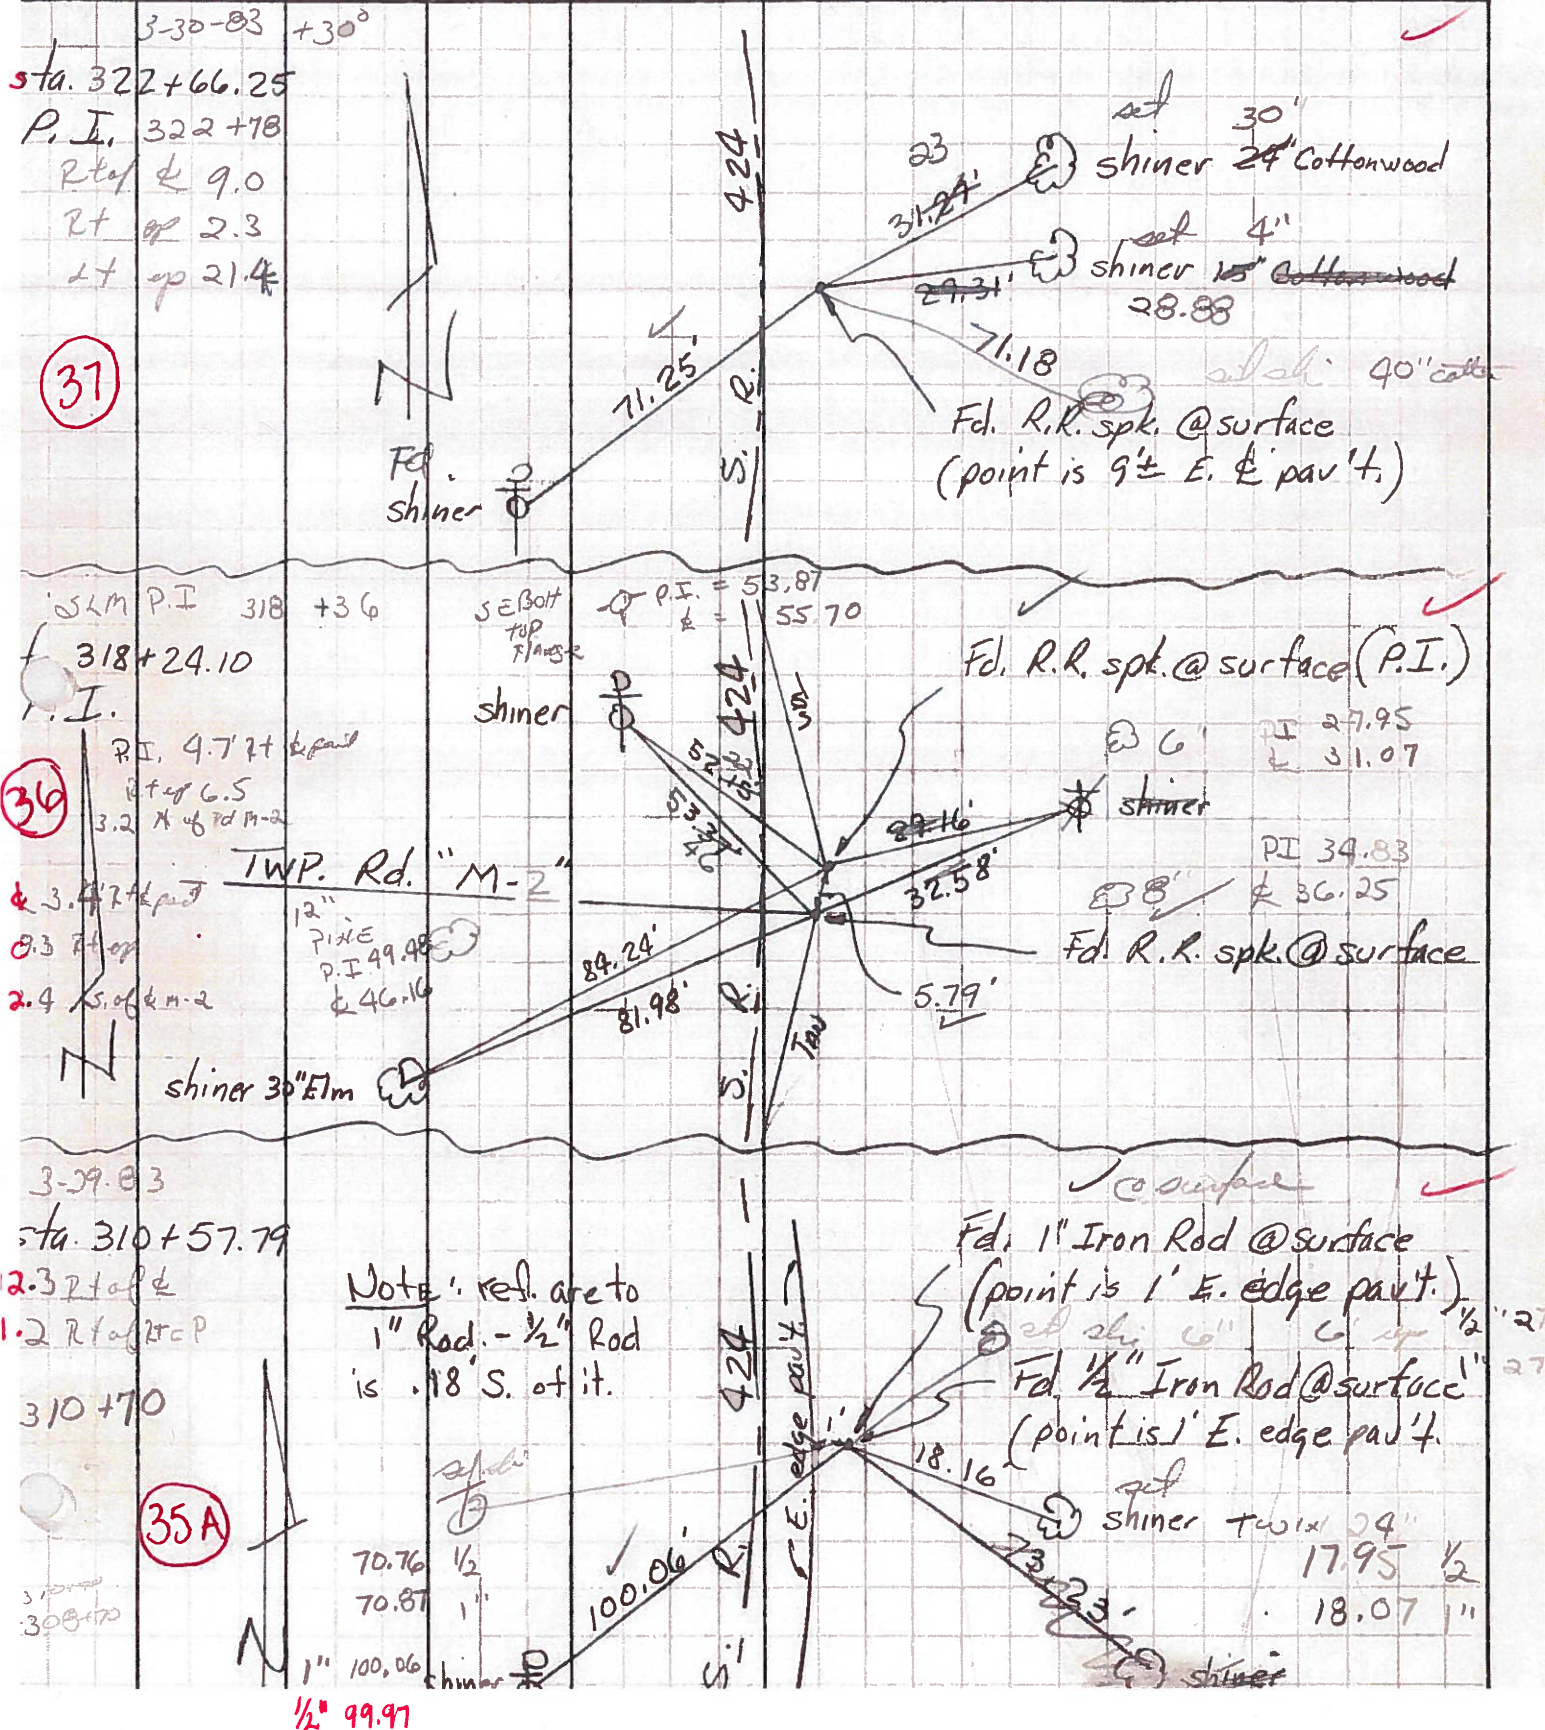 3-30-83 +30°
sta. 322+66.25
P.I. 322+78
Rt of ℄ 9.0
Rt ep 2.3
Lt ep 21.4
37
N
Fd.
shiner
71.25'
S. R. 424
23
31.24'
set 30"
shiner 24" Cottonwood
set 4"
shiner 15" Cottonwood
29.31'
28.88
71.18
40" cotton
Fd. R.R. spk. @ surface
(point is 9'± E. ℄ pav't.)
SLM P.I 318 +36
318+24.10
P.I.
P.I. 4.7' Rt ℄ pav't
Rt ep 6.5
3.2 N of Rd M-2
36
℄ 3.4' Rt ℄ pav't
0.3 Rt ep
2.4 S. of ℄ M-2
N
SE Bolt
top
Flange
P.I. = 53.87
℄ = 55.70
shiner
52.45'
22
53.37'
46
S. R. 424
TAN
Fd. R.R. spk. @ surface (P.I.)
6" PI 27.95
℄ 31.07
shiner
27.16'
32.58'
PI 34.83
8" ℄ 36.25
TWP. Rd. "M-2"
12"
PINE
P.I 49.48
℄ 46.16
Fd. R.R. spk. @ surface
5.79'
84.24'
81.98'
TAN
shiner 30" Elm
3-29-83
sta. 310+57.79
2.3 Rt of ℄
1.2 Rt of Rt EP
310+70
35A
308+70
N
NOTE: ref. are to
1" Rod. - 1/2" Rod
is .18' S. of it.
70.76 1/2
70.87 1"
1" 100.06 shiner
1/2" 99.97
100.06'
S. R. 424
E. edge pav't.
1'
@ surface
Fd. 1" Iron Rod @ surface
(point is 1' E. edge pav't.)
6" 1/2" 27
Fd. 1/2" Iron Rod @ surface 1" 27
(point is 1' E. edge pav't.
18.16'
set
shiner twix 24"
17.95 1/2
18.07 1"
73.23'
shiner